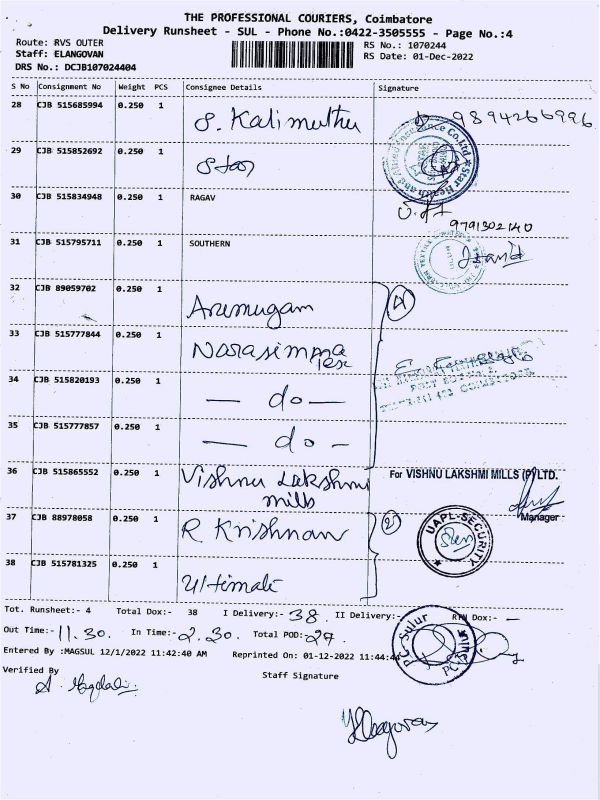 THE PROFESSIONAL COURIERS, Coimbatore
Delivery Runsheet - SUL - Phone No.:0422-3505555 - Page No.:4
Route: RVS OUTER
RS No.: 1070244
Staff: ELANGOVAN
RS Date: 01-Dec-2022
DRS No.: DCJB107024404
S No Consignment No Weight PCS Consignee Details Signature
28 CJB 515685994 0.250 1 S. Kalimuthu 9894266996
29 CJB 515852692 0.250 1 Star
30 CJB 515834948 0.250 1 RAGAV
9791302140
31 CJB 515795711 0.250 1 SOUTHERN
32 CJB 89059702 0.250 1 Arumugam
33 CJB 515777844 0.250 1 Narasimma
Tex
34 CJB 515820193 0.250 1 — do —
35 CJB 515777857 0.250 1 — do —
36 CJB 515865552 0.250 1 Vishnu Lakshmi
mills
For VISHNU LAKSHMI MILLS (P) LTD.
Manager
37 CJB 88978058 0.250 1 R Krishnan (2)
UAPL-SECURITY
38 CJB 515781325 0.250 1 Ultimate
Tot. Runsheet:- 4 Total Dox:- 38 I Delivery:- 38. II Delivery:- RTN Dox:- —
Out Time:- 11.30. In Time:- 2.30. Total POD:- 27.
Entered By :MAGSUL 12/1/2022 11:42:40 AM Reprinted On: 01-12-2022 11:44:44
Verified By
Staff Signature